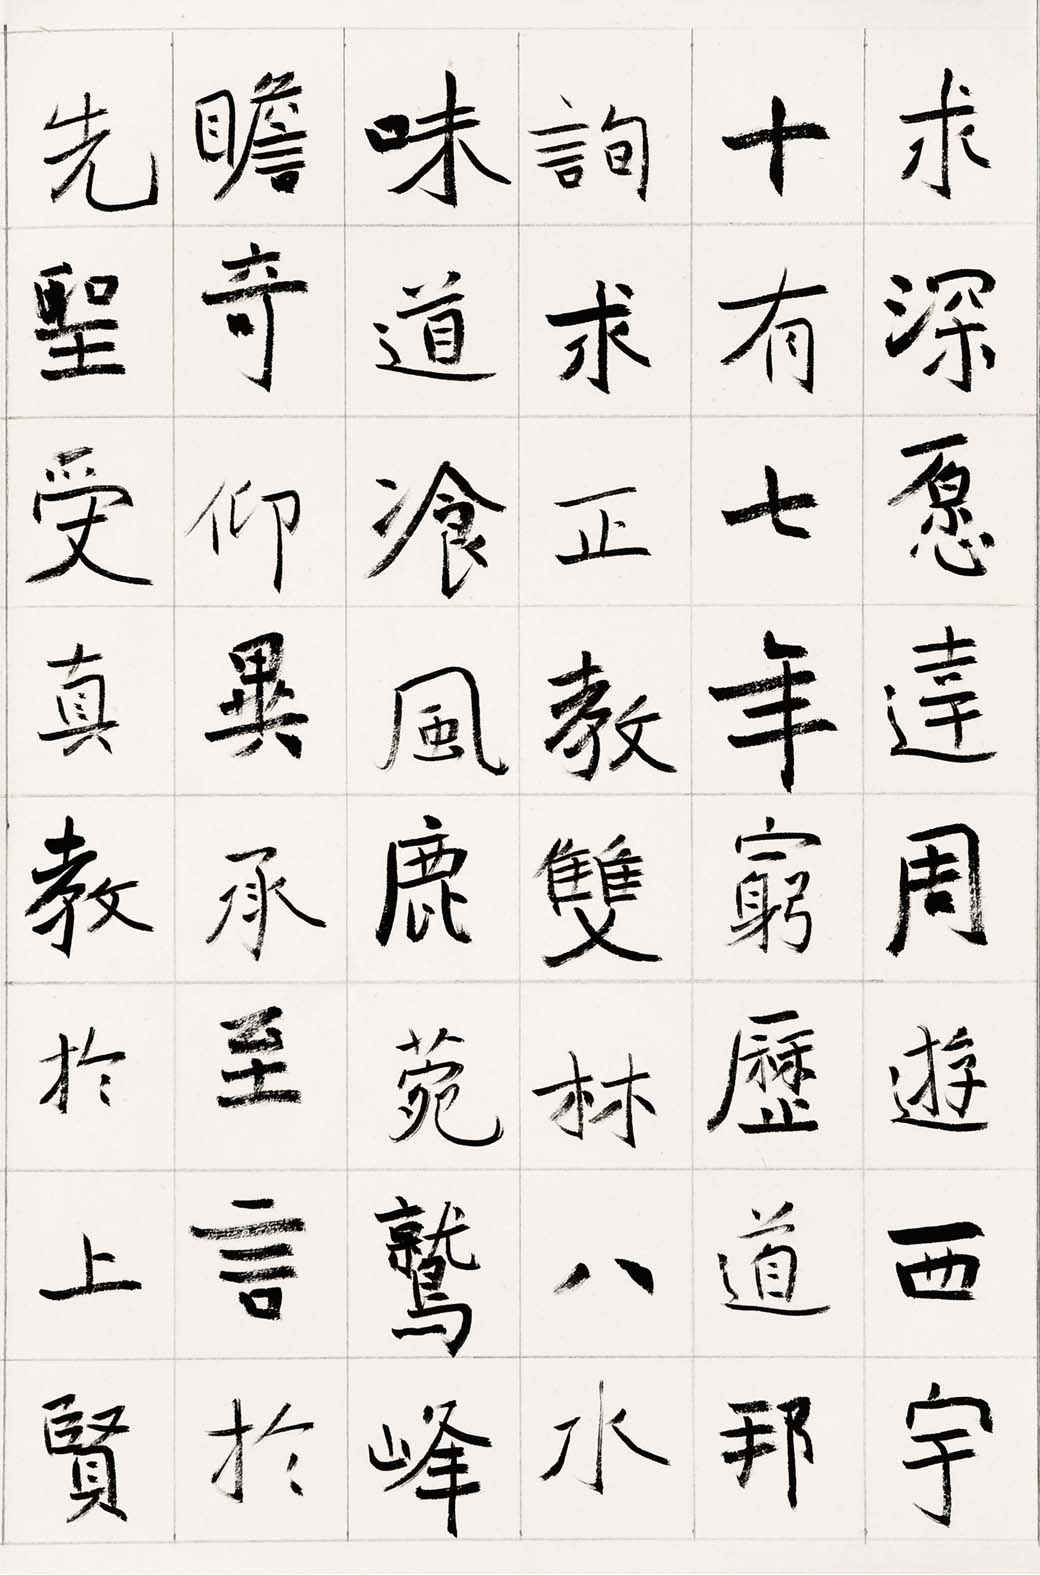 求深愿達周遊西宇
十有七年窮歷道邦
詢求正教雙林八水
味道飡風鹿菀鷲峰
瞻奇仰異承至言於
先聖受真教於上賢